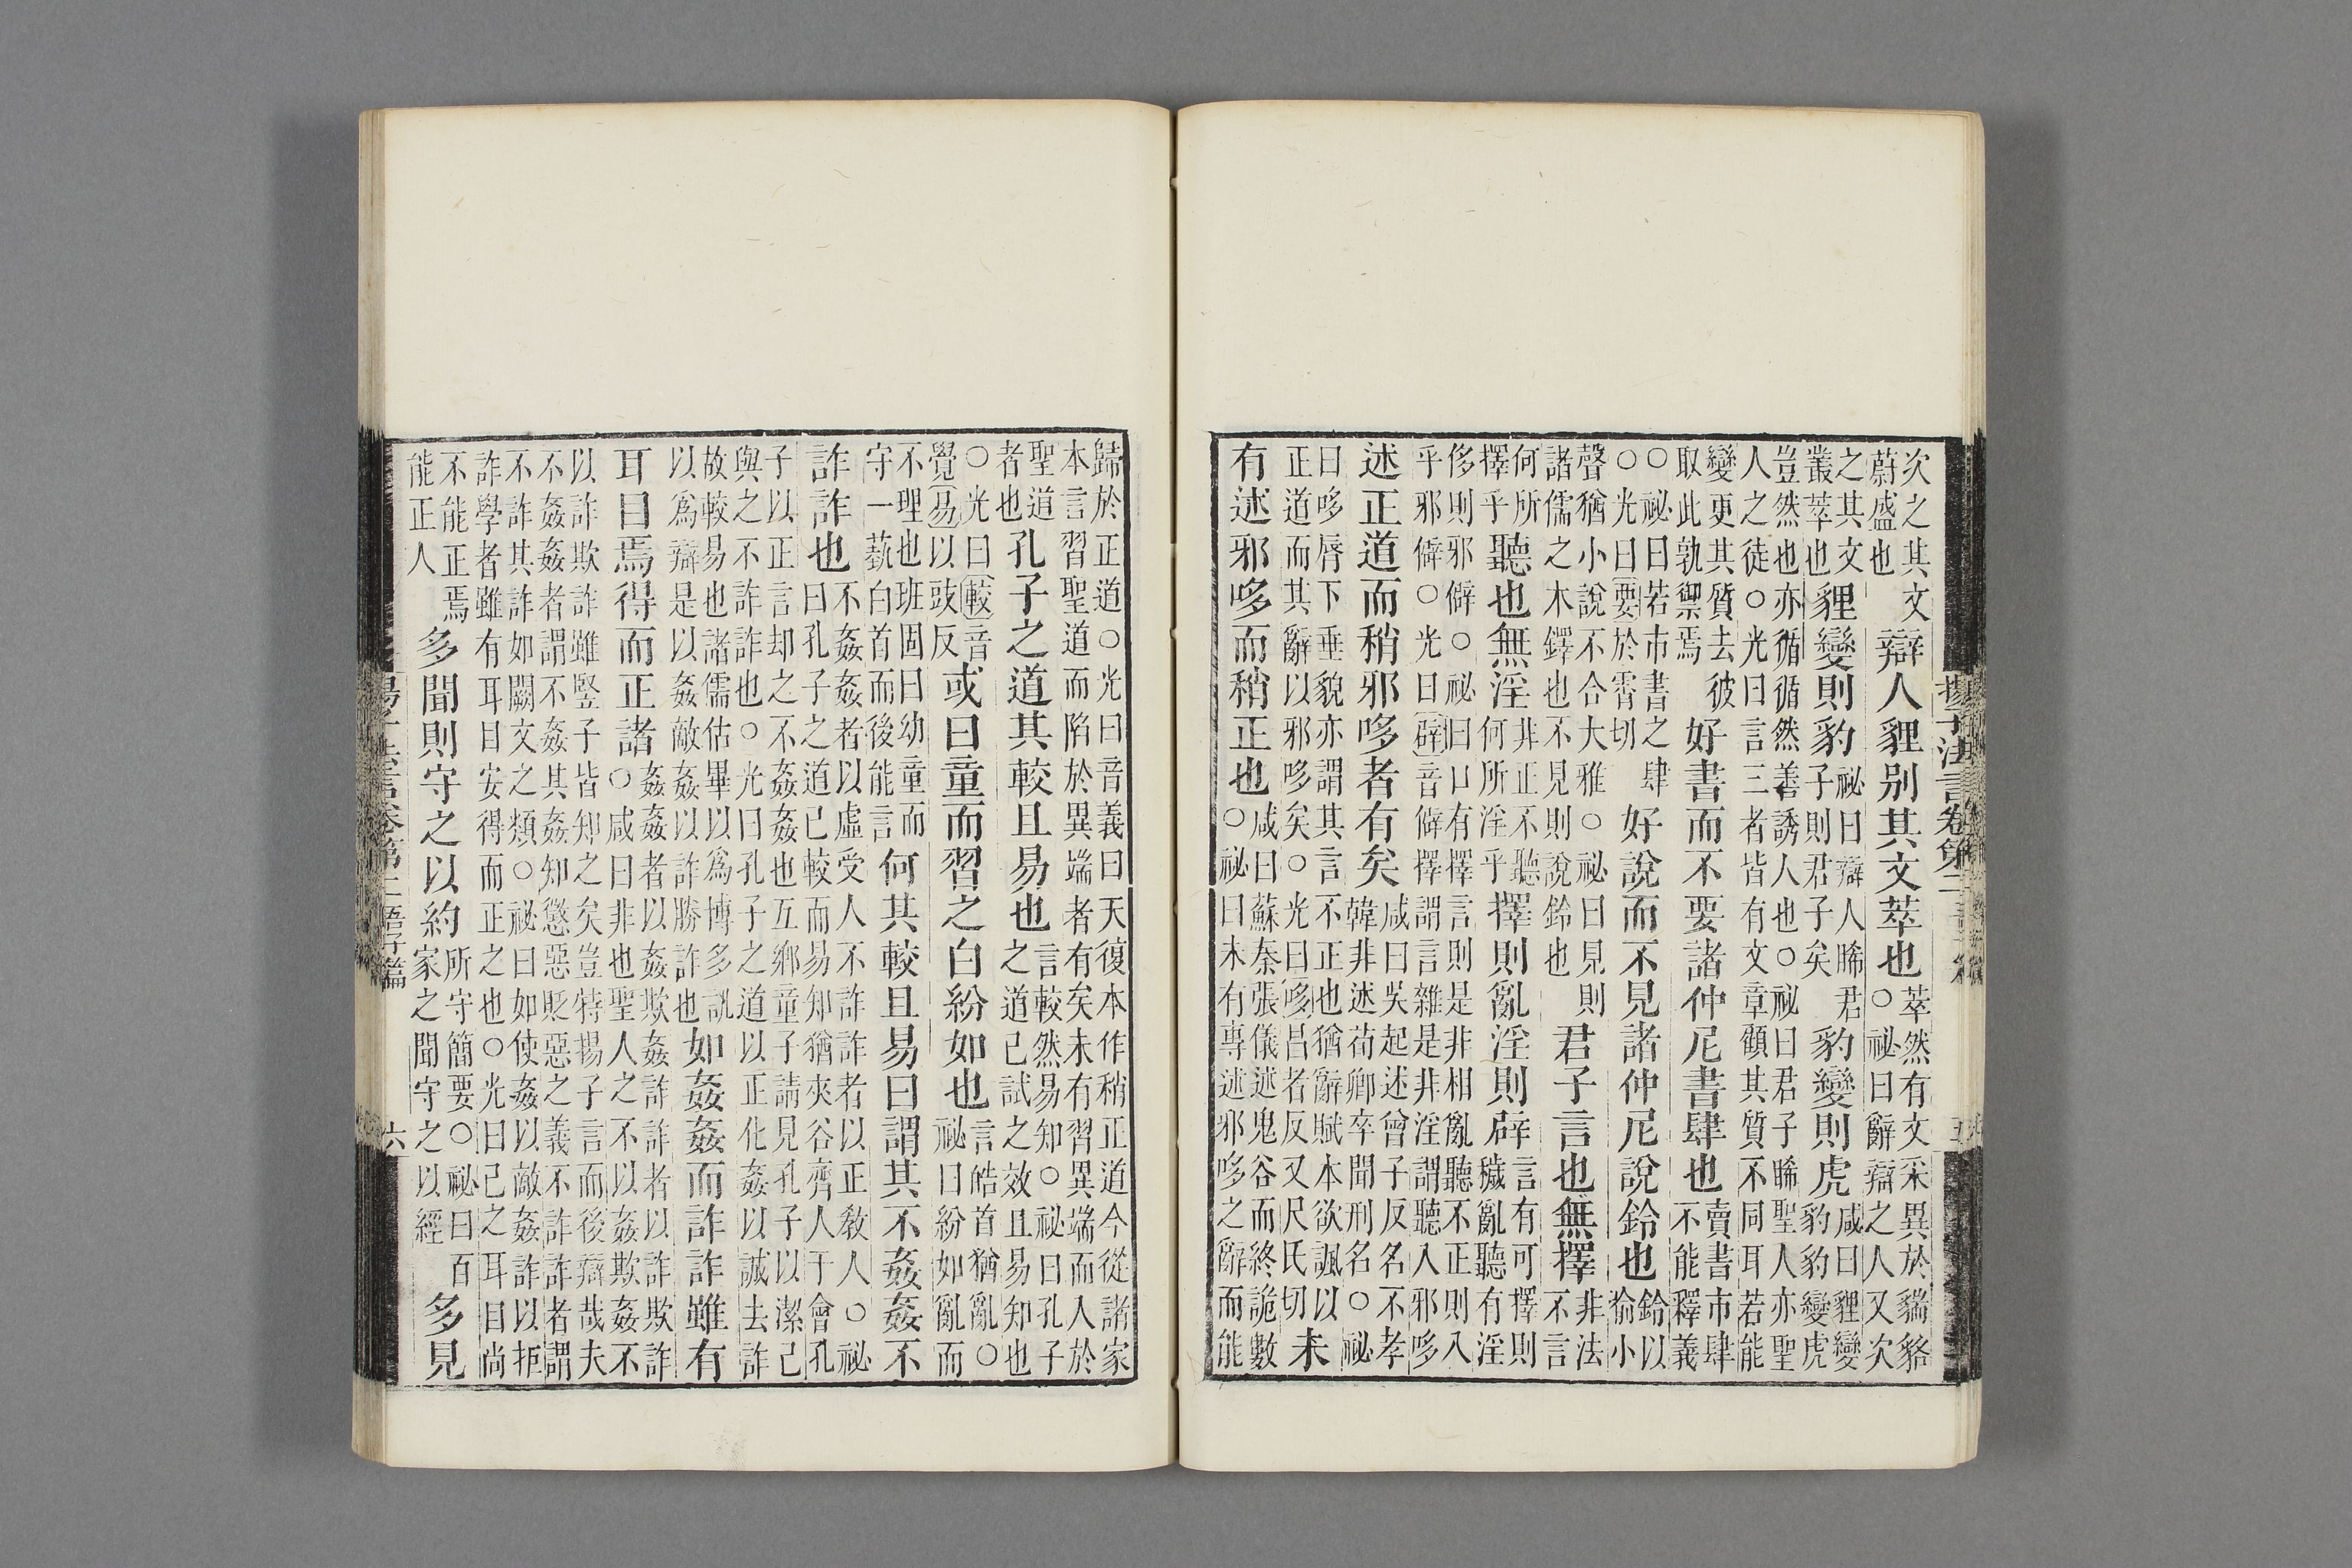 揚子法言卷第二
次之其文蔚盛也辯人貍別其文萃也萃然有文采異於貒貉○祕曰辭辯之人又次
之其文叢萃也貍變則豹祕曰辯人睎君子則君子矣豹變則虎咸曰貍變豹豹變虎
豈然也亦循循然善誘人也○祕曰君子睎聖人亦聖人之徒○光曰言三者皆有文章顧其質不同耳若能
變更其質去彼取此孰禦焉好書而不要諸仲尼書肆也賣書市肆不能釋義
○祕曰若市書之肆○光曰要於霄切好說而不見諸仲尼說鈴也鈴以喻小
聲猶小說不合大雅○祕曰見則諸儒之木鐸也不見則說鈴也君子言也無擇非法不言
何所擇乎聽也無淫非正不聽何所淫乎擇則亂淫則辟言有可擇則穢亂聽有淫
侈則邪僻○祕曰口有擇言則是非相亂聽不正則入乎邪僻○光曰辟音僻擇謂言雜是非淫謂聽入邪哆
述正道而稍邪哆者有矣咸曰吳起述曾子反名不孝韓非述荀卿卒聞刑名○祕
曰哆脣下垂貌亦謂其言不正也猶辭賦本欲諷以正道而其辭以邪哆矣○光曰哆昌者反又尺氏切未
有述邪哆而稍正也咸曰蘇秦張儀述鬼谷而終詭數○祕曰未有專述邪哆之辭而能
歸於正道○光曰音義曰天復本作稍正道今從諸家本言習聖道而陷於異端者有矣未有習異端而人於
聖道者也孔子之道其較且易也言較然易知○祕曰孔子之道已試之效且易知也
○光曰較音覺易以豉反或曰童而習之白紛如也言皓首猶亂○祕曰紛如亂而
不理也班固曰幼童而守一蓺白首而後能言何其較且易曰謂其不姦姦不
詐詐也不姦姦者以虛受人不詐詐者以正敎人○祕曰孔子之道已較而易知猶夾谷齊人干會孔
子以正言却之不姦姦也互鄉童子請見孔子以潔己與之不詐詐也○光曰孔子之道以正化姦以誠去詐
故較易也諸儒佔畢以爲博多訊以爲辯是以姦敵姦以詐勝詐也如姦姦而詐詐雖有
耳目焉得而正諸姦姦者以姦欺姦詐詐者以詐欺詐○咸曰非也聖人之不以姦欺姦不
以詐欺詐雖竪子皆知之矣豈特揚子言而後辯哉夫不姦姦者謂不姦其姦知懲惡貶惡之義不詐詐者謂
不詐其詐如闕文之類○祕曰如使姦以敵姦詐以拒詐學者雖有耳目安得而正之也○光曰己之耳目尚
不能正焉能正人多聞則守之以約所守簡要○祕曰百家之聞守之以經多見
六